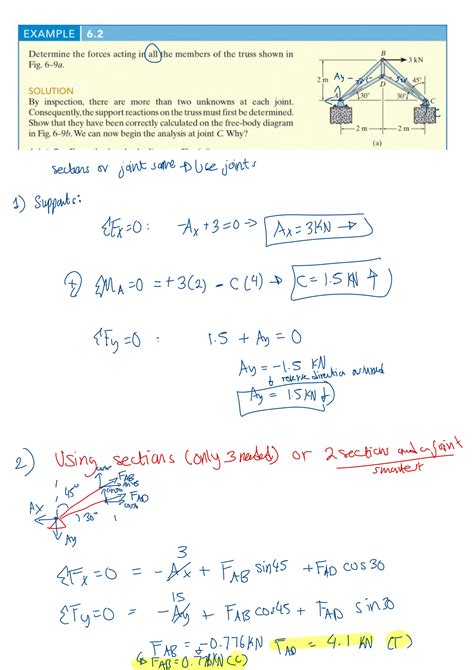 EXAMPLE 6.2
Determine the forces acting in all the members of the truss shown in
Fig. 6–9a.
SOLUTION
By inspection, there are more than two unknowns at each joint.
Consequently, the support reactions on the truss must first be determined.
Show that they have been correctly calculated on the free-body diagram
in Fig. 6–9b. We can now begin the analysis at joint C. Why?
B
3 kN
2 m
Ay
45°
D
A
30°
30°
C
2 m
2 m
(a)
sections or joint same → Use joints
1) Supports:
ΣFx=0: -Ax+3=0 → Ax=3KN →
ΣMA=0 = +3(2) - C(4) → C=1.5 KN ↑
ΣFy=0: 1.5 + Ay = 0
Ay = -1.5 KN
↳ reverse direction assumed
Ay = 1.5KN ↓
2) Using sections (only 3 needed) or 2 sections and a joint
smartest
45°
FAB
FAD
Ax
30°
Ay
3
ΣFx=0 = -Ax + FAB sin45 + FAD cos30
15
ΣFy=0 = -Ay + FAB cos45 + FAD sin30
FAB = -0.776KN FAD = 4.1 KN (T)
↳ FAB=0.776KN (C)